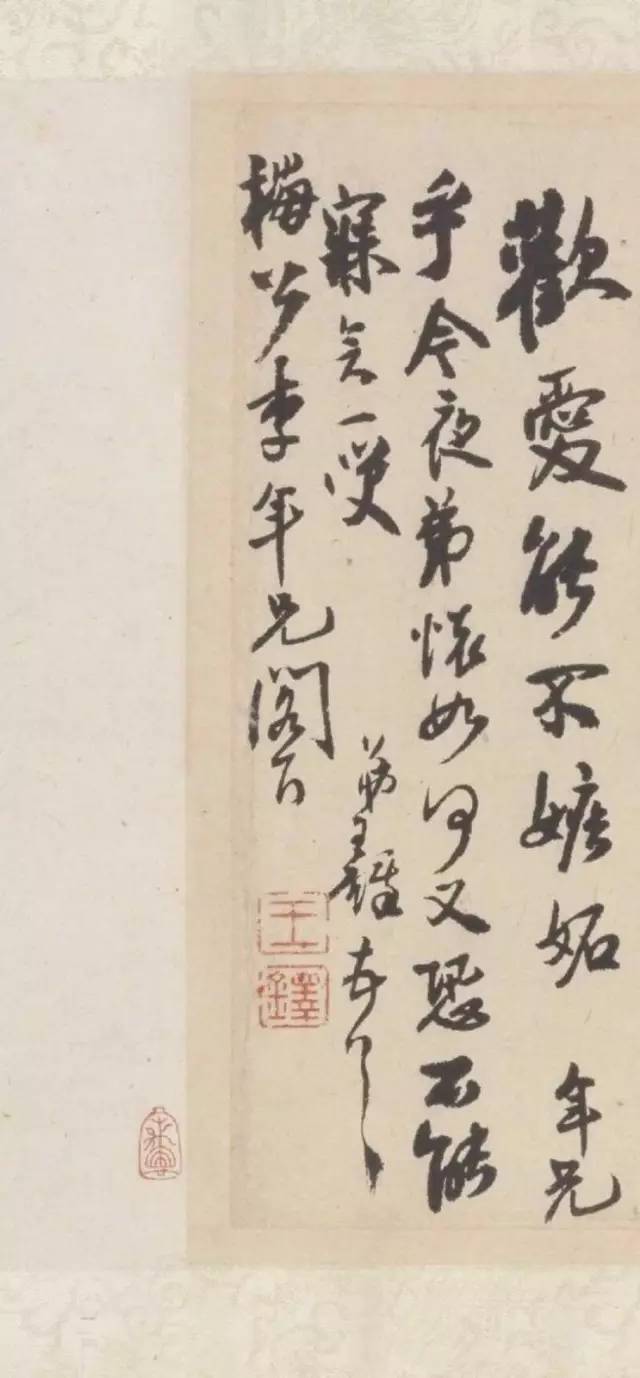 歡愛能不嫉妬 年兄
乎今夜弟懷如何又恐不能
寐矣一
弟王鐸頓首
梅公李年兄閣下
王
鐸